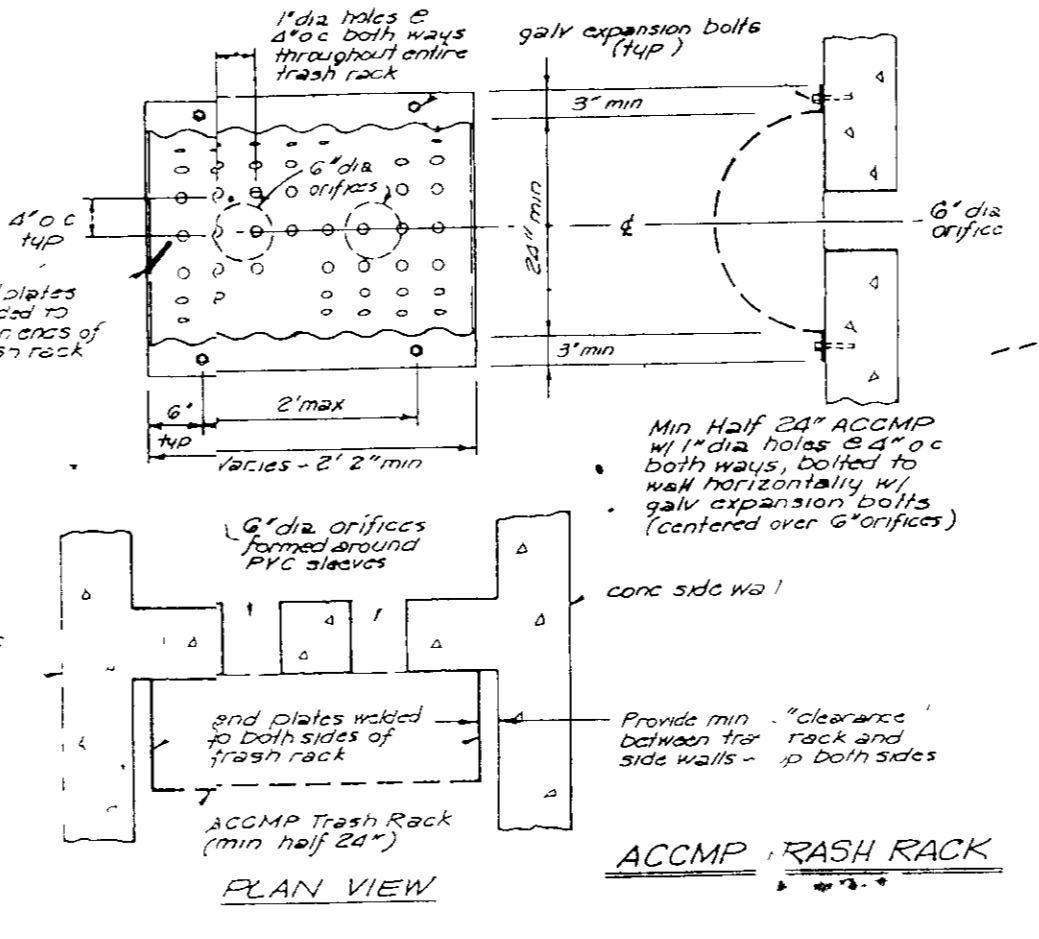 1" dia holes @
4" o c both ways
throughout entire
trash rack
galv expansion bolts
(typ)
3" min
6" dia
orifices
4" o c
typ
24" min
℄
6" dia
orifice
plates
to
ends of
rack
3" min
6"
typ
2' max
varies - 2' 2" min
Min Half 24" ACCMP
w/ 1" dia holes @ 4" o c
both ways, bolted to
wall horizontally w/
galv expansion bolts
(centered over 6" orifices)
6" dia orifices
formed around
PVC sleeves
conc side wal
end plates welded
to both sides of
trash rack
Provide min "clearance
between rack and
side walls - both sides
ACCMP Trash Rack
(min half 24")
PLAN VIEW
ACCMP RASH RACK